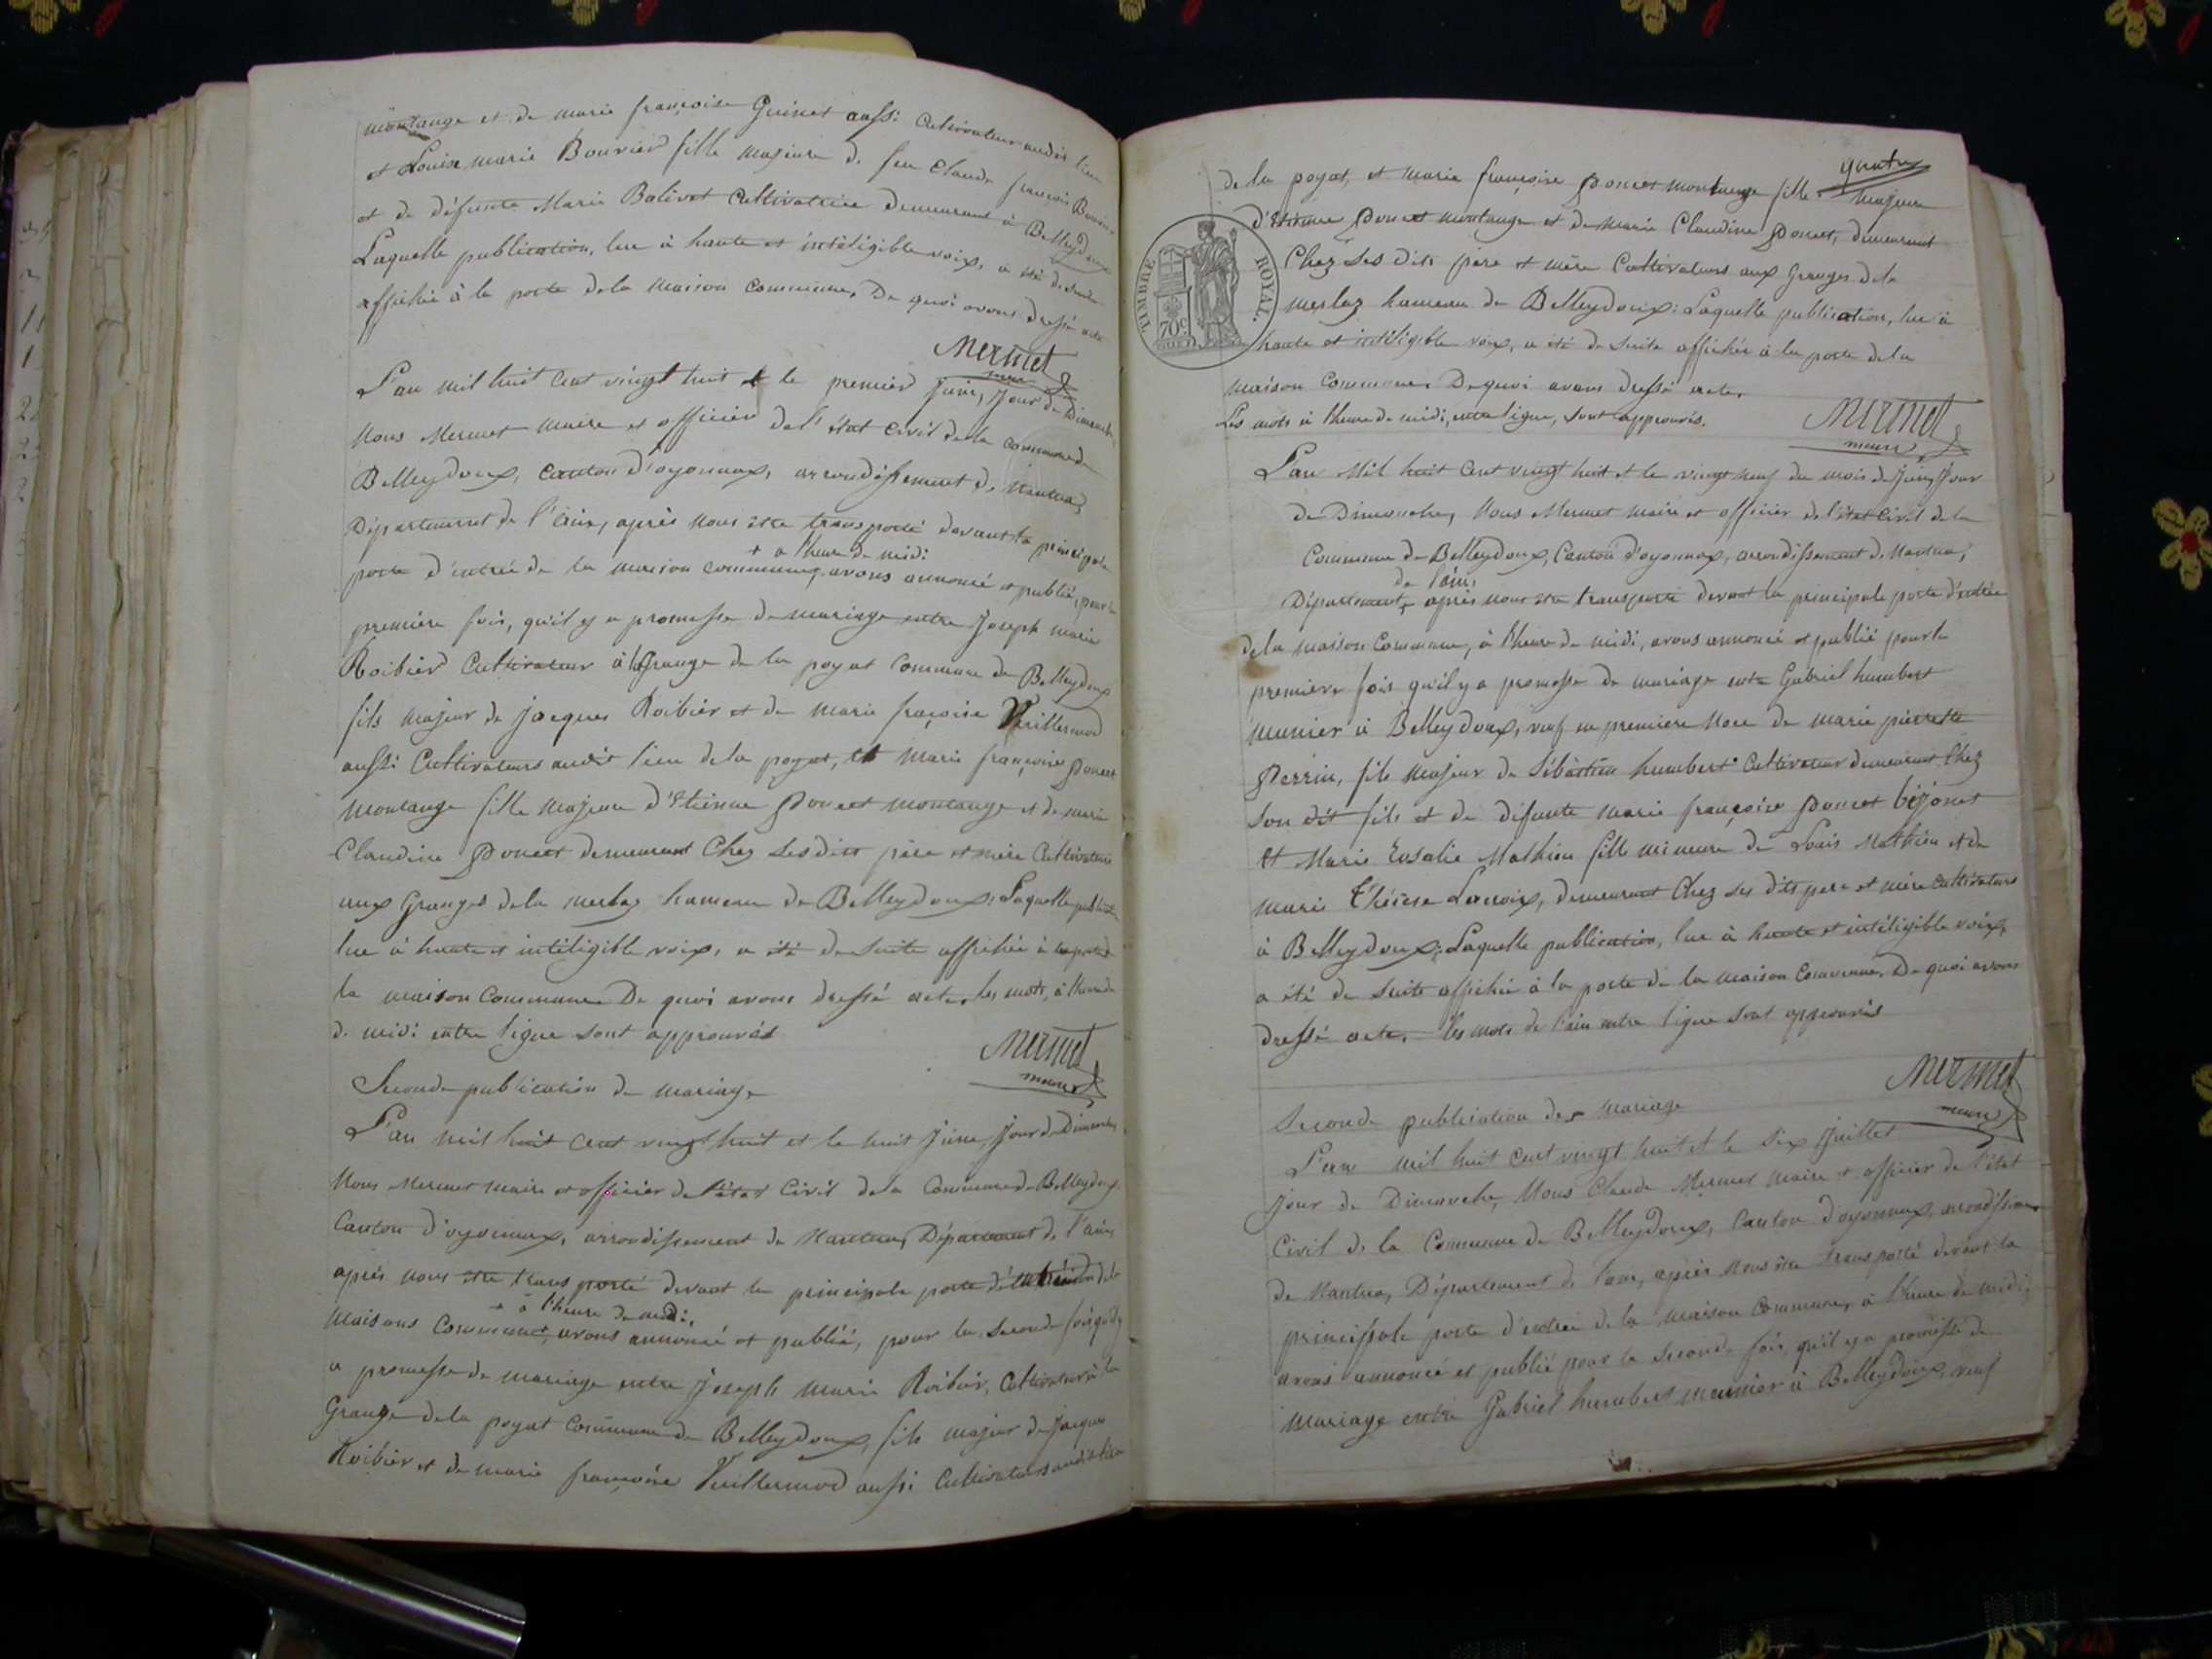 montange et de marie françoise Guinet aussi Cultivateur audit lieu
et Louise marie Bouvier fille majeure de feu Claude françois Bouvier
et de défunte Marie Balivet Cultivatrice demeurant à Belleydoux
Laquelle publication, lue à haute et intéligible voix, a été de suite
affichée à la porte de la maison commune, De quoi avons dressé acte
Mermet
maire
L'an mil huit cent vingt huit et le premier juin, jour de Dimanche,
Nous Mermet maire et officier de l'état civil de la commune de
Belleydoux, canton d'oyonnax, arrondissement de nantua,
Département de l'ain, après nous être transporté devant la principale
+ a l'heure de midi
porte d'entrée de la maison commune, avons annoncé et publié, pour la
première fois, qu'il y a promesse de mariage entre Joseph marie
Roibier Cultivateur à la Grange de la poyat commune de Belleydoux
fils majeur de jacques Roibier et de marie françoise Vuillermod
aussi Cultivateurs audit lieu de la poyat, et marie françoise poncet
montange fille majeure d'Etienne poncet montange et de marie
Claudine poncet demeurant Chez ses dits père et mère Cultivateurs
aux Granges de la merlaz hameau de Belleydoux; Laquelle publication
lue à haute et intéligible voix, a été de suite affichée à la porte de
la maison commune De quoi avons dressé acte, les mots, à l'heure de
de midi entre ligne sont approuvés
Mermet
maire
Seconde publication de mariage
L'an mil huit cent vingt huit et le huit juin, jour de Dimanche,
Nous Mermet maire et officier de l'état Civil de la Commune de Belleydoux,
Canton d'oyonnax, arrondissement de Nantua, Département de l'ain,
après nous être transporté devant la principale porte d'entrée de la
+ à l'heure de midi,
maisons commune, avons annoncé et publié, pour la seconde fois qu'il y
a promesse de mariage entre joseph marie Roibier, Cultivateur à la
Grange de la poyat commune de Belleydoux, fils majeur de Jacques
Roibier et de marie françoise Vuillermod aussi Cultivateurs audit lieu
quatre
de la poyat, et marie françoise poncet montange fille majeure
d'Etienne poncet montange et de marie Claudine poncet, demeurant
Chez ses dits père et mère Cultivateurs aux Granges de la
merlaz hameau de Belleydoux; Laquelle publication, lue à
haute et intéligible voix, a été de suite affichée à la porte de la
maison commune. De quoi avons dressé acte,
Les mots à l'heure de midi, entre ligne, sont approuvés.
TIMBRE ROYAL.
70c
Mermet
maire
L'an Mil huit Cent vingt huit et le vingt neuf du mois de Juin, Jour
de Dimanche, Nous Mermet maire et officier de l'état Civil de la
Commune de Belleydoux, Canton d'oyonnax, arrondissement de Nantua,
de l'ain,
Département, après nous être transporté devant la principale porte d'entrée
de la maison commune, à l'heure de midi, avons annoncé et publié pour la
première fois qu'il y a promesse de mariage entre Gabriel humbert
munier à Belleydoux, veuf en première Noce de marie pierrette
Perrin, fils Majeur de Sébastien humbert Cultivateur demeurant Chez
son dit fils et de défunte marie françoise poncet bijonet
et Marie Rosalie Mathieu fille mineure de Louis Mathieu et de
marie Thérèse Lacroix, demeurant Chez ses dits père et mère Cultivateurs
à Belleydoux; Laquelle publication, lue à haute et intéligible voix,
a été de suite affichée à la porte de la maison commune. De quoi avons
dressé acte. les mots de l'ain entre ligne sont approuvés
Mermet
maire
Seconde publication de mariage
L'an mil huit cent vingt huit et le six Juillet
Jour de Dimanche, Nous Claude Mermet Maire et officier de l'état
Civil de la Commune de Belleydoux, Canton d'oyonnax, arrondissement
de Nantua, Département de l'ain, après nous être transporté devant la
principale porte d'entrée de la maison commune, à l'heure de midi,
avons annoncé et publié pour la seconde fois, qu'il y a promesse de
mariage entre Gabriel humbert meunier à Belleydoux, veuf